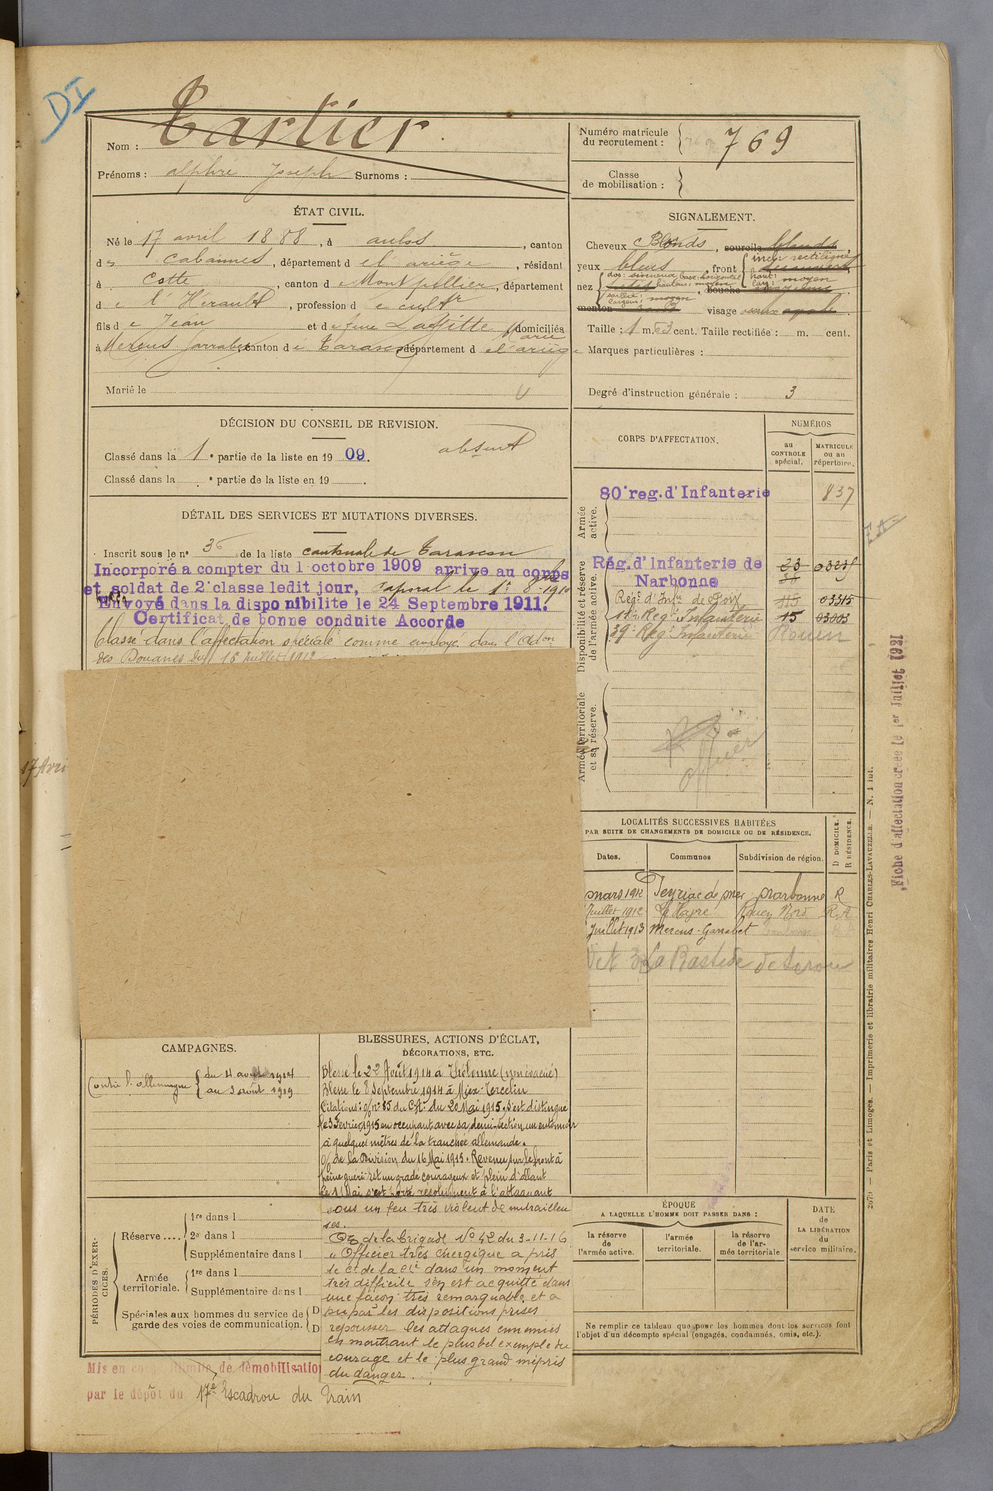 DI
Nom : Tartier
Prénoms : alphre Joseph Surnoms :
Numéro matricule
du recrutement : 769
Classe
de mobilisation :
ÉTAT CIVIL.
Né le 17 avril 1888, à aulos, canton
d es Cabannes, département d e l'ariège, résidant
à Cette, canton d e Montpellier, département
d e l'Hérault, profession d e cultr
fils d e Jean et d e feue Laffitte Marie domiciliés
à Mercus Garrabet canton d e Tarascon département d e l'ariège
Marié le
SIGNALEMENT.
Cheveux Blonds, sourcils blonds,
yeux bleus, front
nez
menton visage
Taille : 1 m. 63 cent. Taille rectifiée : m. cent.
Marques particulières :
Degré d'instruction générale : 3
DÉCISION DU CONSEIL DE REVISION.
Classé dans la 1e partie de la liste en 1909. absent
Classé dans la e partie de la liste en 19 .
DÉTAIL DES SERVICES ET MUTATIONS DIVERSES.
Inscrit sous le n° 36 de la liste cantonale de Tarascon
Incorporé a compter du 1 octobre 1909 arrive au corps
et soldat de 2e classe ledit jour, caporal le 1r 8bre 1910
Envoyé dans la disponibilite le 24 Septembre 1911.
Certificat de bonne conduite Accorde
Classé dans l'affectation spéciale comme employé dans l'adon
des Douanes du 15 Juillet 1912
CORPS D'AFFECTATION.
NUMÉROS
au
CONTROLE
spécial.
MATRICULE
ou au
répertoire.
Armée
active.
80e reg. d'Infanterie 837
Disponibilité et réserve
de l'armée active.
Rég. d'Infanterie de
Narbonne
Regt d'Infie de
Regt Infanterie 15 03003
39e Reg Infanterie Rouen
Armée territoriale
et sa réserve.
17 Avri
Fiche d'affectation créée le 1er Juillet 1921
LOCALITÉS SUCCESSIVES HABITÉES
PAR SUITE DE CHANGEMENTS DE DOMICILE OU DE RÉSIDENCE.
Dates. Communes Subdivision de région. D DOMICILE. R RÉSIDENCE.
mars 1912 Peyriac de mer Narbonne R
Juillet 1912 Le Havre Rouen Nord R.A
Juillet 1913 Mercus-Garrabet
La Bastide de Serou
CAMPAGNES.
Contre l'allemagne du 4 aout 1914
au 3 aout 1919
BLESSURES, ACTIONS D'ÉCLAT,
DÉCORATIONS, ETC.
Blessé le 22 Août 1914 à Thélonne (non évacué)
Blessé le 8 Septembre 1914 à Meix-Tiercelin
Citations : o/ n° 85 du C.A. du 20 Mai 1915. S'est distingué
le 3 Février 1915 en occupant avec sa demi-section un entonnoir
à quelques mètres de la tranchée allemande.
o/ de la Division du 16 Mai 1915. Revenu sur le front à
peine guéri est un gradé courageux et plein d'allant
le 1 Mai s'est porté résolument à l'attaque
sous un feu très violent de mitrailleu
ses.
O de la Brigade N° 42 du 3-11-16
" Officier très énergique a pris
le Ct de la Cie dans un moment
très difficile s'en est acquitté dans
une façon très remarquable et a
su par les dispositions prises
repousser les attaques ennemies
en montrant le plus bel exemple de
courage et le plus grand mépris
du danger.
PÉRIODES D'EXER-
CICES.
Réserve .... 1re dans l
2e dans l
Supplémentaire dans l
Armée
territoriale. 1re dans l
Supplémentaire dans l
Spéciales aux hommes du service de
garde des voies de communication. D
D
ÉPOQUE
A LAQUELLE L'HOMME DOIT PASSER DANS :
la réserve
de l'armée active.
l'armée
territoriale.
la réserve
de l'ar-
mée territoriale.
DATE
de
LA LIBÉRATION
du
service militaire.
Ne remplir ce tableau que pour les hommes dont les services font
l'objet d'un décompte spécial (engagés, condamnés, omis, etc.).
Mis en congé illimité de démobilisation
par le dépôt du 17e Escadron du Train
2670 — Paris et Limoges. — Imprimerie et librairie militaires Henri CHARLES-LAVAUZELLE. — N. 1 int.